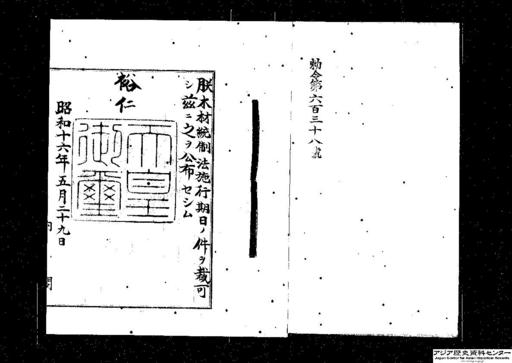 勅令第六百三十八号
朕木材統制法施行期日ノ件ヲ裁可
シ茲ニ之ヲ公布セシム
裕仁
天皇
御璽
昭和十六年五月二十九日
内閣
アジア歴史資料センター
Japan Center for Asian Historical Records